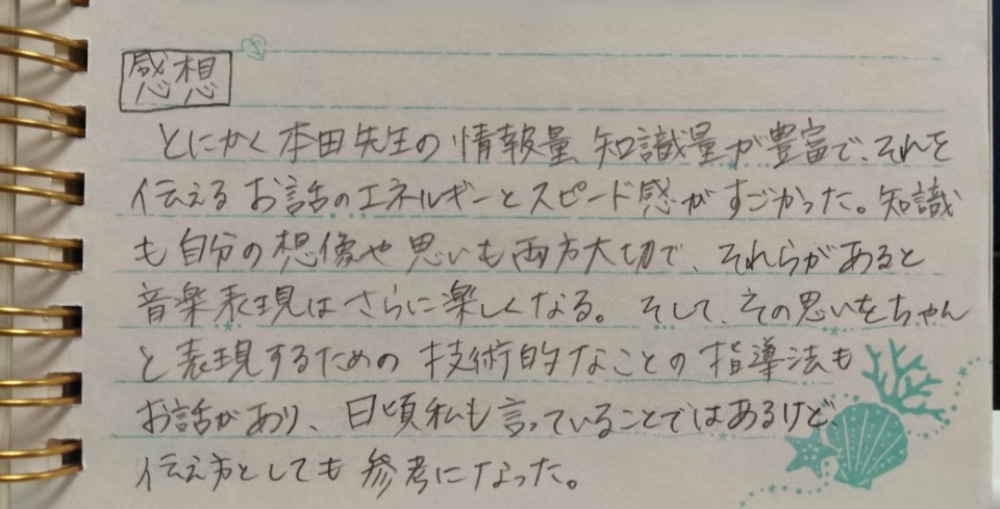 感想
とにかく本田先生の情報量、知識量が豊富で、それを
伝えるお話のエネルギーとスピード感がすごかった。知識
も自分の想像や思いも両方大切で、それらがあると
音楽表現はさらに楽しくなる。そして、その思いをちゃん
と表現するための技術的なことの指導法も
お話があり、日頃私も言っていることではあるけど、
伝え方としても参考になった。